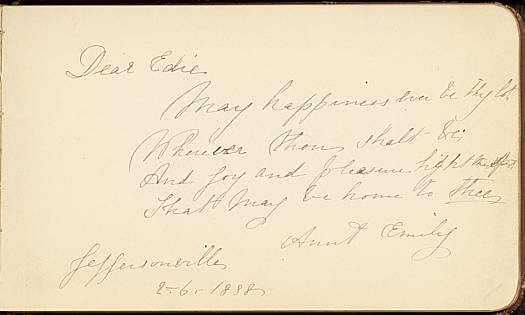 Dear Edie
May happiness ever be thy lot,
Wherever thou shalt be;
And joy and pleasure light the spot
That may be home to thee
Aunt Emily
Jeffersonville
2-6-1888